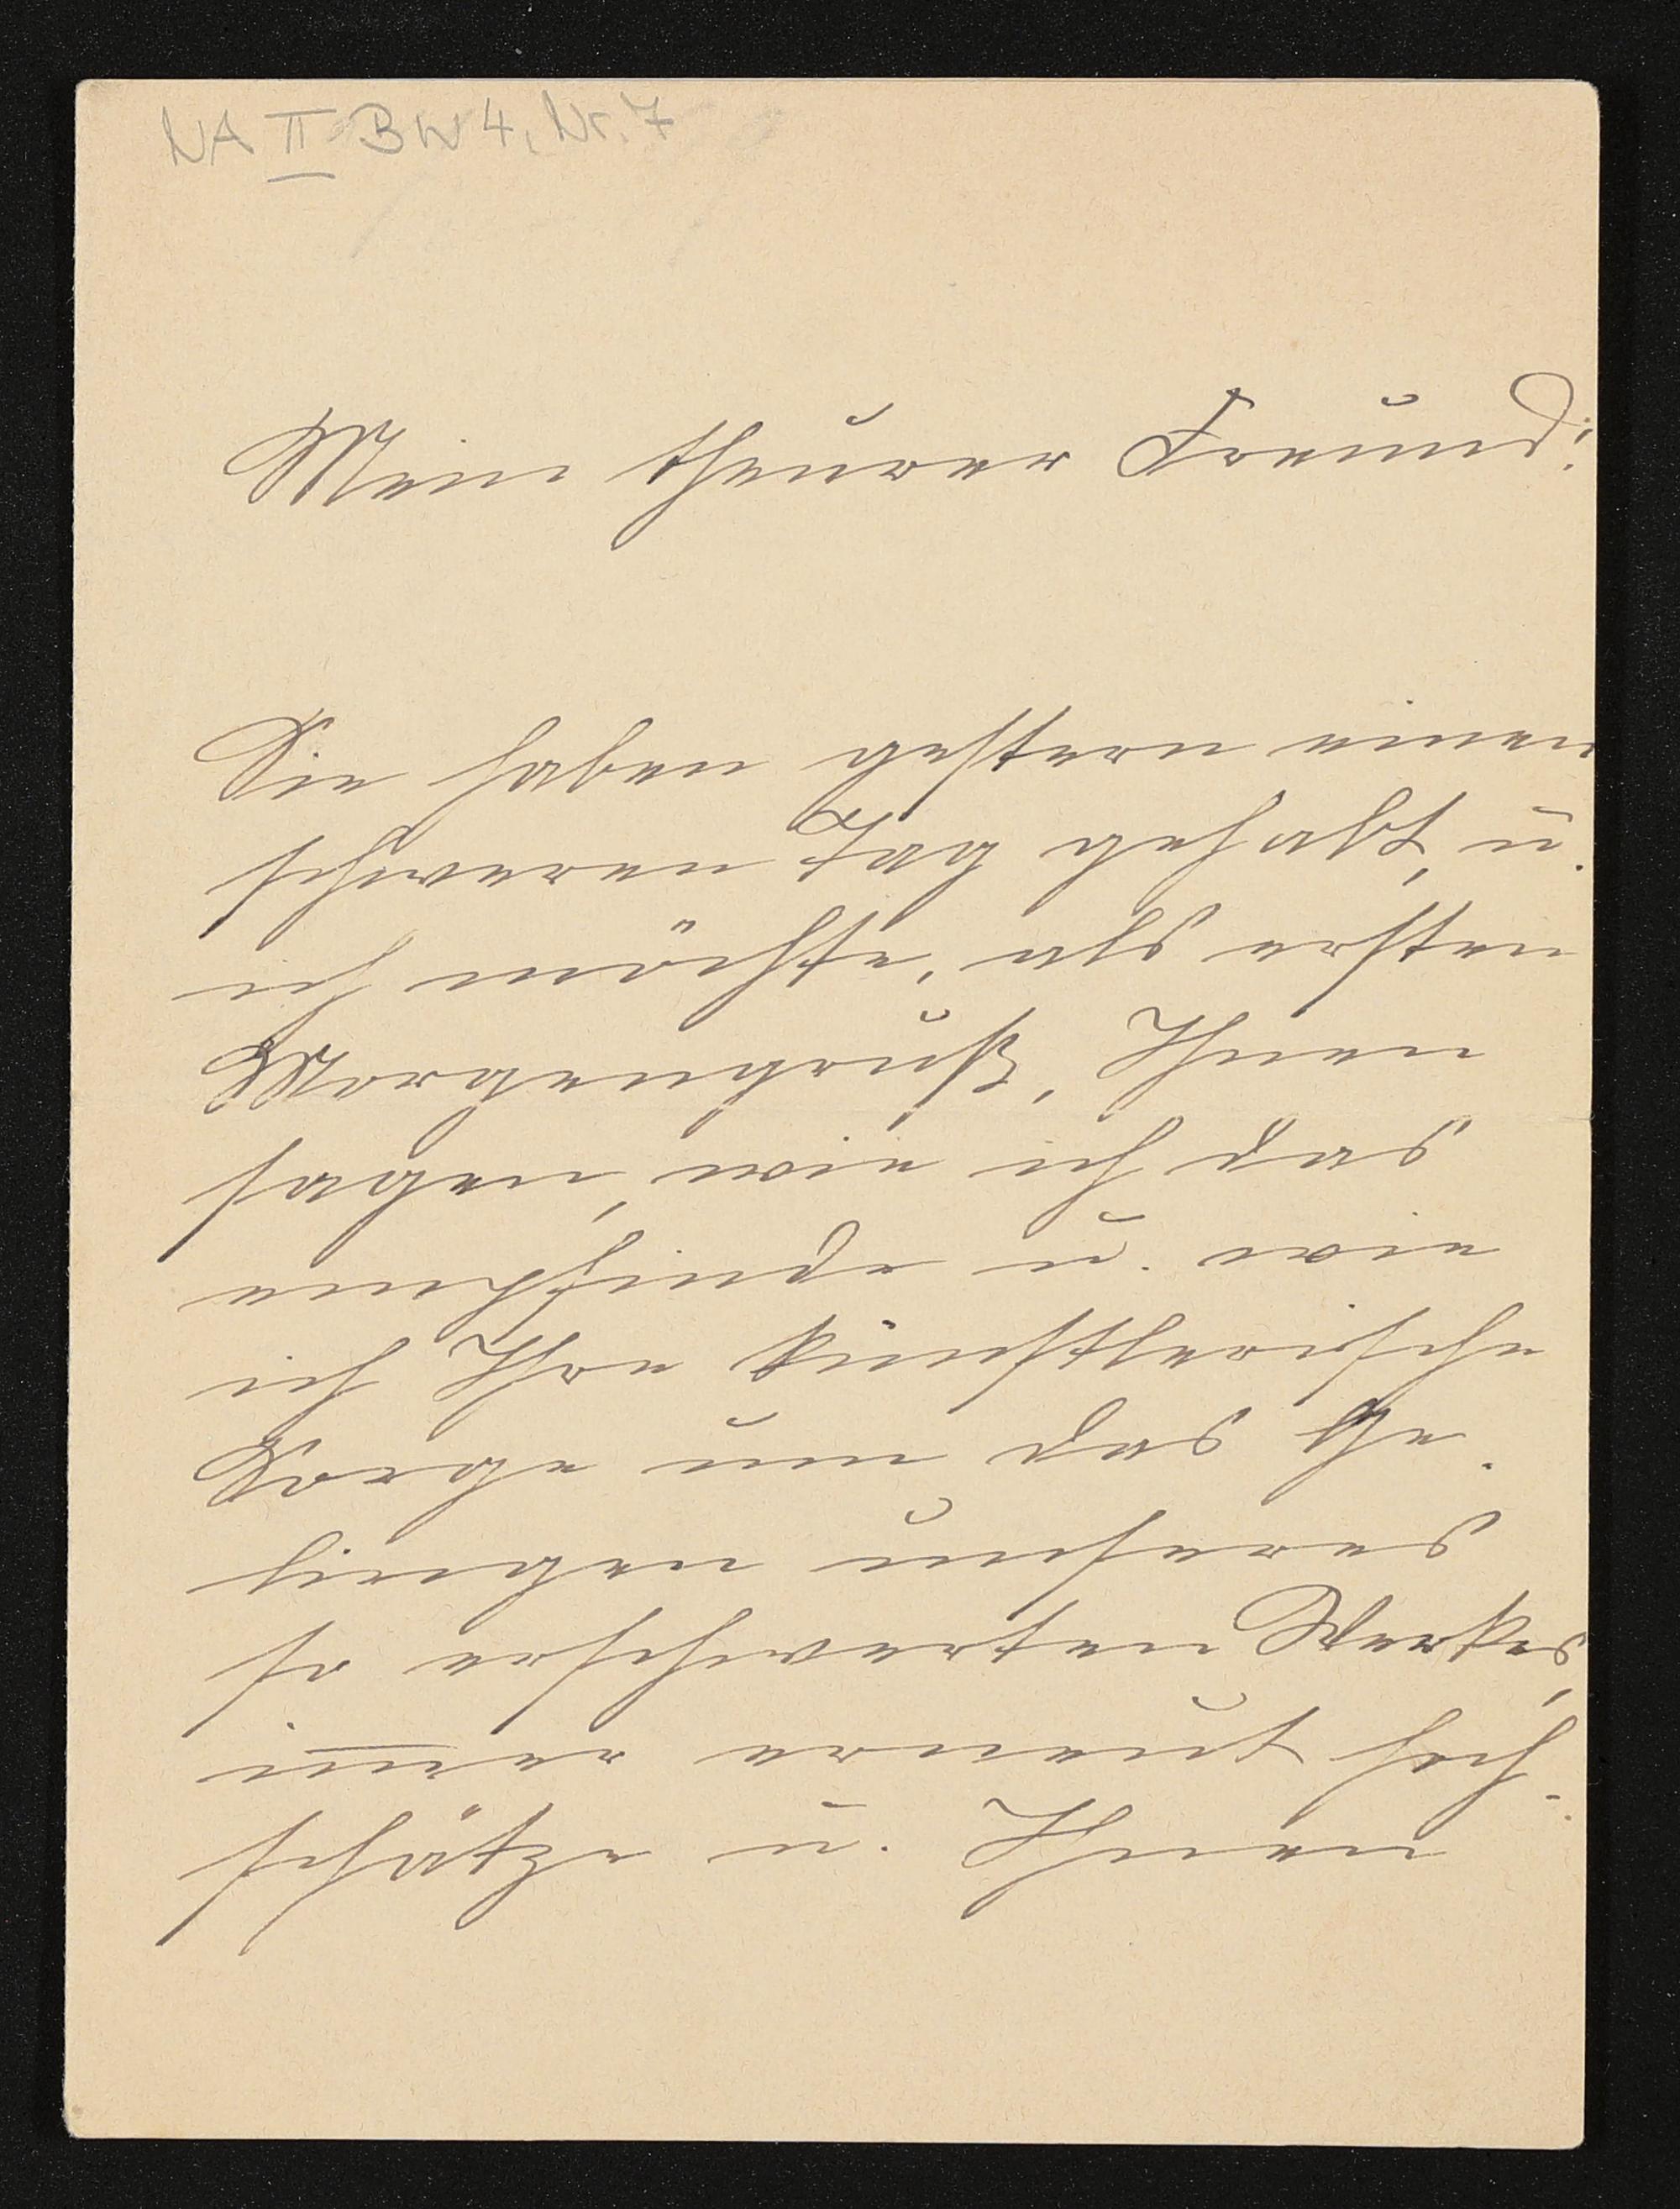 NA II BW 4, Nr. 7
Mein theurer Freund!
Sie haben gestern einen
schweren Tag gehabt, u.
ich möchte, als ersten
Morgengruß, Ihnen
sagen, wie ich das
empfinde u. wie
ich Ihre künstlerische
Sorge um das Ge-
lingen unseres
so erschwerten Werkes,
im̅er erneut hoch-
schätze u. Ihnen